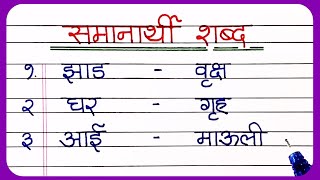 समानार्थी शब्द
१. झाड - वृक्ष
२ घर - गृह
३ आई - माऊली